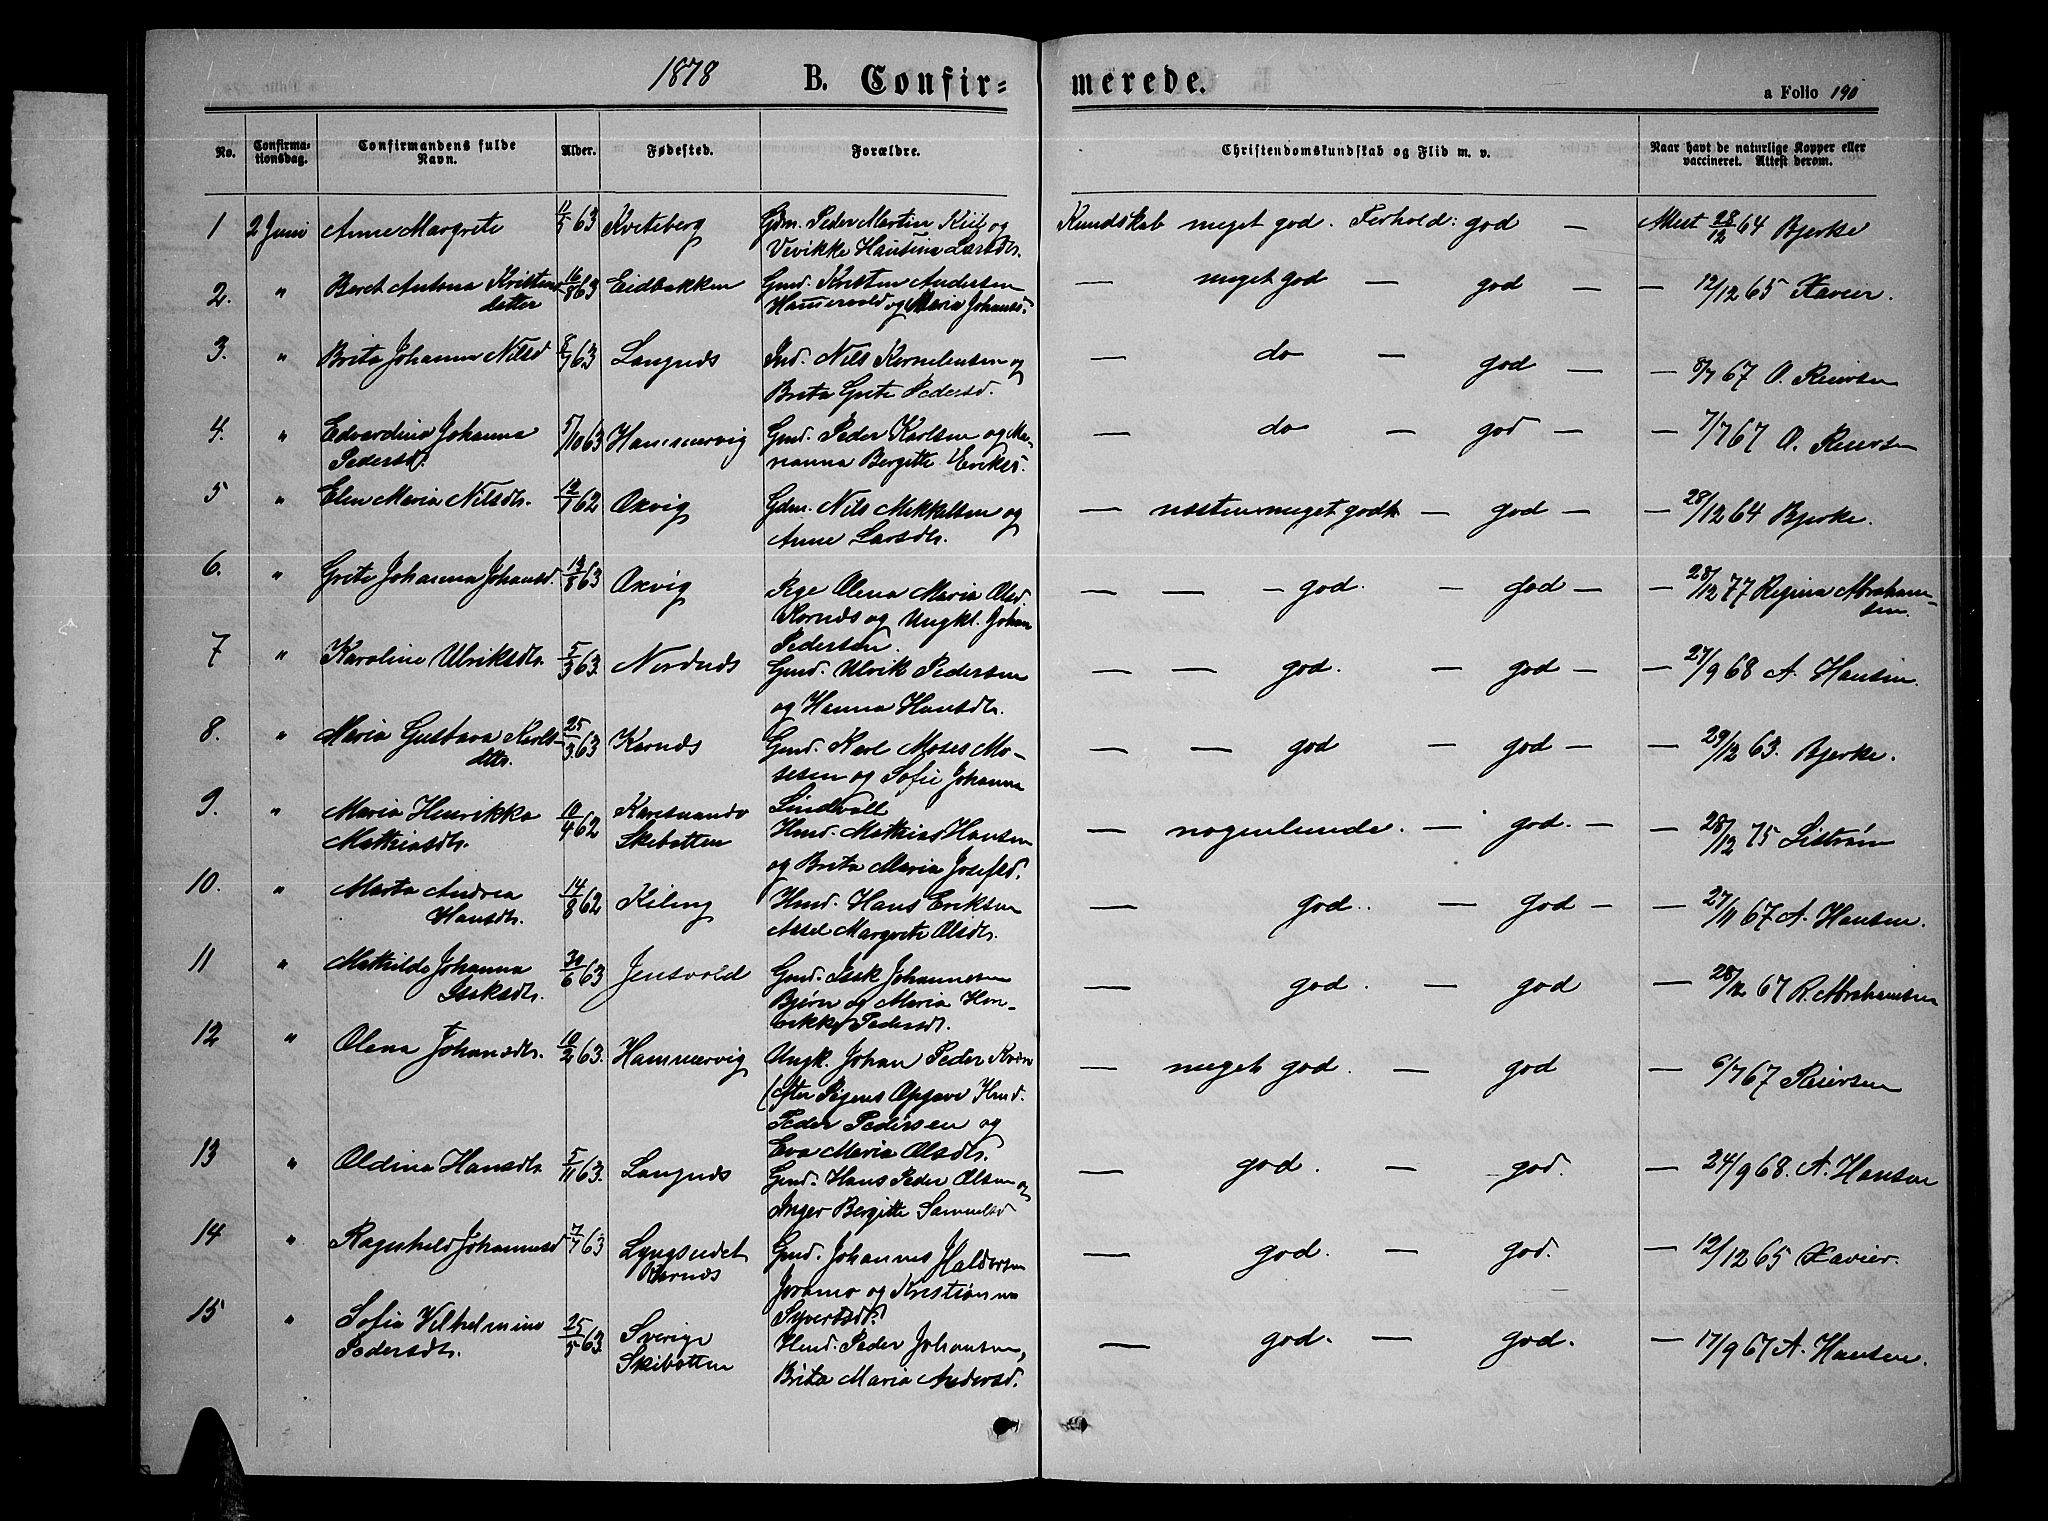 1878 B. Confir=
merede.
a Folio 190
No. Confirma-tionsdag. Confirmandens fulde Navn. Alder. Fødested. Forældre. Christendomskundskab og Flid m. v. Naar havt de naturlige Kopper eller vaccineret. Attest derom.
1 2 Juni Anne Margrete 11/5 63 Kveteberg Gdm. Peder Martin Kiil og Kundskab meget god. Forhold: god — Attest 28/12 64 Bjerke
Vevikke Hansina Larsdtr.
2. " Beret Antona Kristens 16/8 63 Eidbakken Gmd. Kristen Andersen — meget god — god — — 12/12 65 Xavier.
datter Hammervold og Maria Johansd.
3. " Brita Johanna Nilsd 8/7 63 Langnæs Ind. Nils Kornelius en og — do — god — — 8/7 67 O. Reiersen
Brita Grete Pedersd.
4. " Edvardina Johanna 5/10 63 Hammervig Gmd. Peder Karlsen og Ma- — do — god — — 7/7 67 O. Reiersen
Pedersd. rianna Bergitte Eriks.
5 " Elen Maria Nilsdtr. 12/7 62 Oxvig Gdm. Nils Mikkelsen og — næsten meget godt — god — — 28/12 64 Bjerke.
Anne Larsdtr.
6. " Grete Johanna Johansd. 19/8 63 Oxvig Pige Olena Maria Olsd. — — — god. — god — — 28/12 77 Regina Abraham-
Kornæs og Ungkl. Johan sen.
7 " Karoline Ulriksdtr. 5/3 63. Nordnæs Pedersen.
Gmd. Ulrik Pedersen — — god. — god — — 27/9 68 A. Hansen.
og Hanna Hansdtr.
8. " Maria Gustava Karls- 25/3 63 Karnæs Gmd. Karl Moses Mo- — — god — god — — 29/12 63. Bjerke.
dtr. sesen og Sofie Johanna
9. " Maria Henrikka 10/4 62 Karesuando Lindvall
Mathiasdtr. Skibotten Hmd. Mathias Hansen — nogenlunde. — god. — — 28/12 75 Listrøm
og Brita Maria Josefsd.
10. " Marta Andrea 14/8 62 Kileng Hmd. Hans Eriksen — god. — god — — 27/11 67 A. Hansen.
Hansdtr. Assel Margrete Olsdtr.
11 " Mathilde Johanna 30/6 63 Jensvold Gmd. Isak Johannesen — god. — god — 28/12 67 R. Abrahamsen
Isaksdtr. Bjørn og Maria Hen-
rikke Pedersdt.
12 " Olena Johansdtr. 10/2 63. Hammervig Ungk. Johan Peder — meget god. — god — 6/7 67 Reiersen
(efter Pigens Opgave Hmd.
Peder Pedersen og
13 " Oldina Hansdtr. 5/11 63. Langnæs Eva Maria Olsdtr.
Gmd. Hans Peder Olsen og — god. — god. — 24/9 68. A. Hansen
Inger Bergitte Samuelsd
14 " Ragnhild Johannesd 7/7 63 Lyngseidet Gmd. Johannes Haldorsen — god. — god. — 12/12 65 Xavier.
Karnæs Joramo og Kristianna
15 " Sofia Vilhelmine 25/5 63 Sverige Syversdtr.
Pedersdtr. Skibotten Hmd. Peder Johansen, — god. — god. — 17/9 67 A. Hansen.
Brita Maria Andersd.